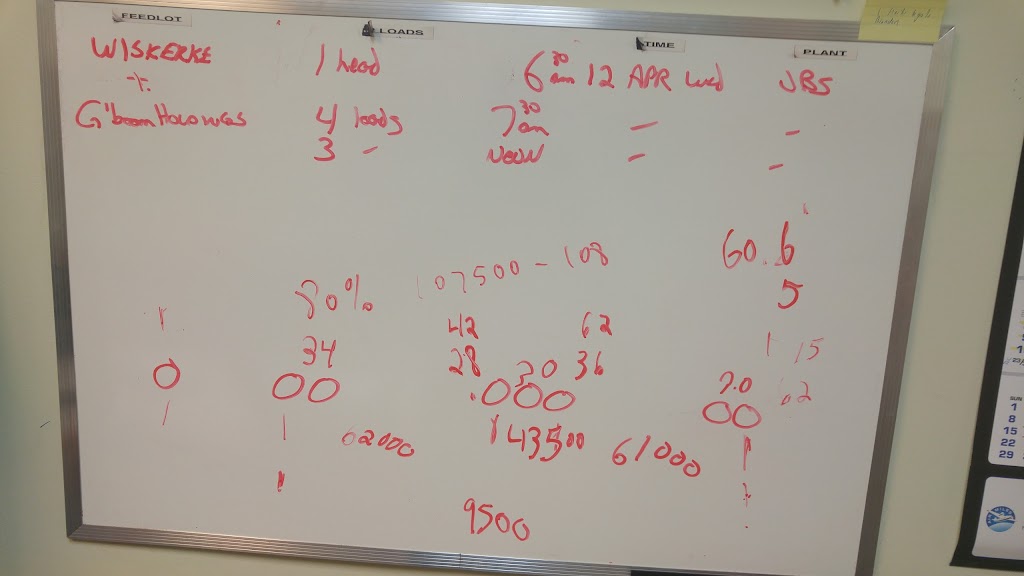 FEEDLOT LOADS TIME PLANT
WISKERKE 1 head 6 30 am 12 APR wed JBS
+
4 loads 7 30 am - -
3 - NOON - -
60.6
107500 - 108
80%
5
42 62
34 28 30 36
1 15
7.0 .2
62000 143500 61000
9500
SUN
1
8
15
22
29